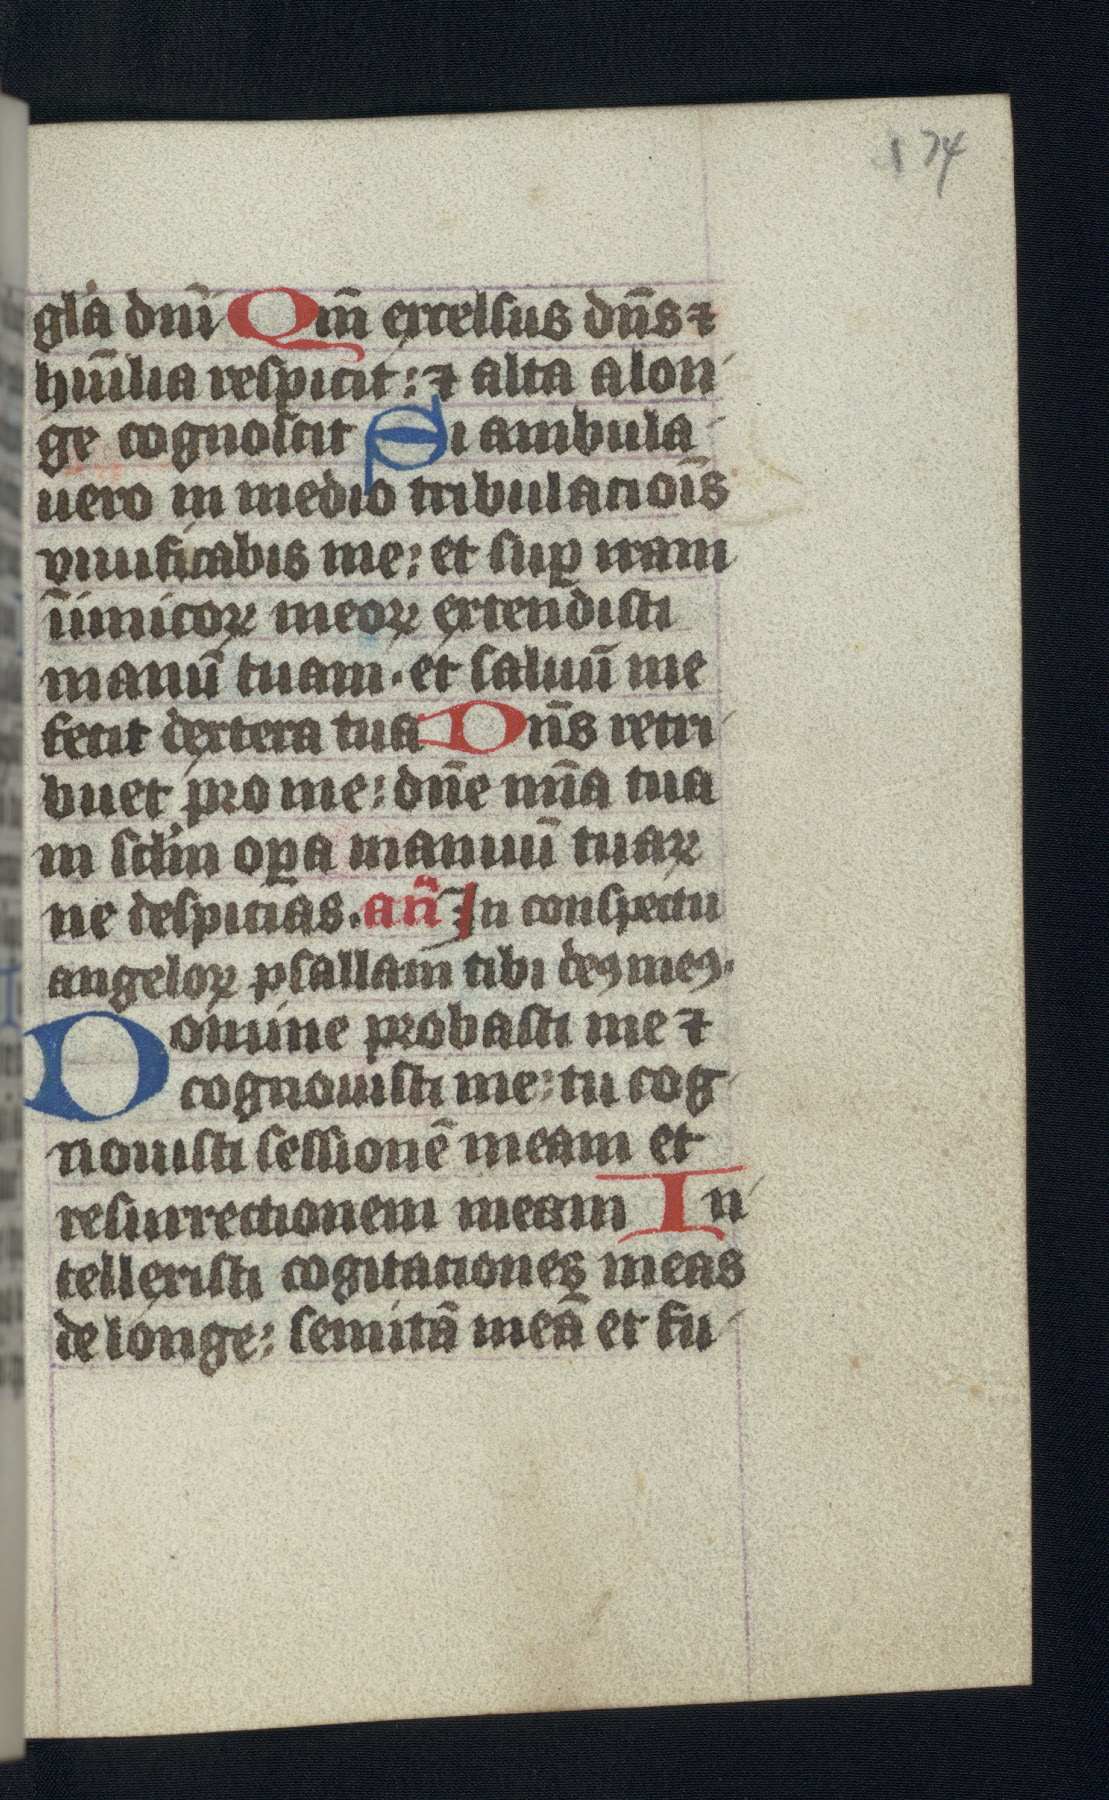 174
gl̄a dn̄i Qm̄ excelsus dn̄s ⁊
hūilia respicit : ⁊ alta a lon
ge cognoscit Si ambula
uero in medio tribulatiōis
viuificabis me : et suꝑ iram
īimicoꝝ meoꝝ extendisti
manū tuam · et saluū me
fecit dextera tua Dn̄s retri
buet pro me : dn̄e mīa tua
in sc̄lm oꝑa manuū tuaꝝ
ne despicias . an̄ In conspectu
angeloꝝ psallam tibi deꝰ meꝰ ·
Domine probasti me ⁊
cognouisti me : tu cog
nouisti sessionē meam et
resurrectionem meam In
tellexisti cogitationes meas
de longe : semitā meā et fu